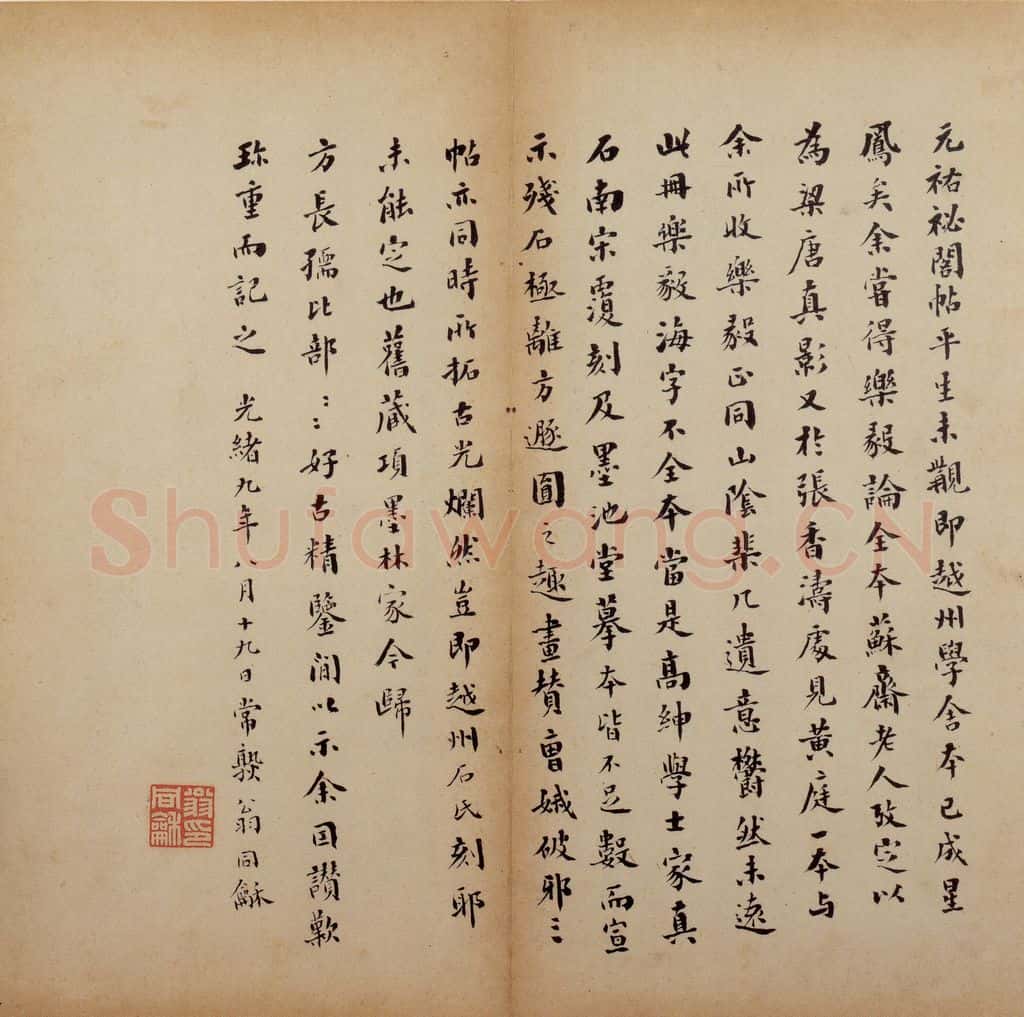 元祐祕閣帖平生未覯即越州學舍本已成星
鳳矣余嘗得樂毅論全本蘇齋老人攷定以
為梁唐真影又於張香濤處見黃庭一本与
余所收樂毅正同山陰棐几遺意欝然未遠
此冊樂毅海字不全本當是高紳學士家真
石南宋覆刻及墨池堂摹本皆不足數而宣
示殘石極離方遯圓之趣畫贊曹娥破邪三
帖亦同時所拓古光爛然豈即越州石氏刻耶
未能定也舊藏項墨林家今歸
方長孺比部:: 好古精鑒間以示余因讚歎
珎重而記之 光緒九年八月十九日常熟翁同龢
翁同龢印
Shufawang.CN